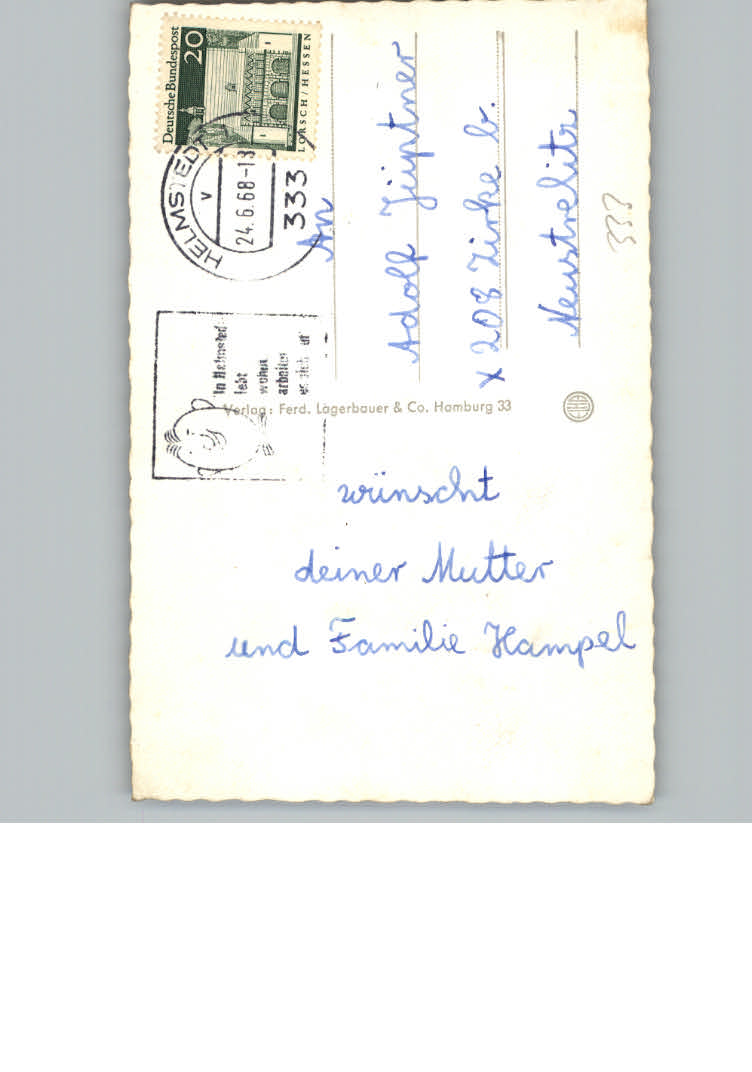 Deutsche Bundespost
20
LORSCH/HESSEN
HELMSTEDT
V
24.6.68-13
333
In Helmstedt
lebt
wohnt
arbeitet
es sich gut
An
Adolf Jüptner
x 208 Zirke b.
Neustrelitz
333
Verlag: Ferd. Lagerbauer & Co. Hamburg 33
wünscht
deiner Mutter
und Familie Hampel